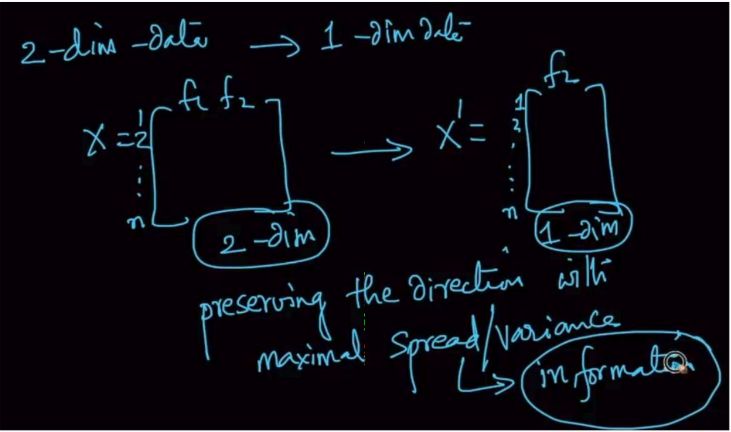 2-dim-data → 1-dim data
f₁ f₂
f₂
X = 1
2
⋮
n
X' = 1
2
⋮
n
2-dim
1-dim
preserving the direction with
maximal spread/variance
↳ information